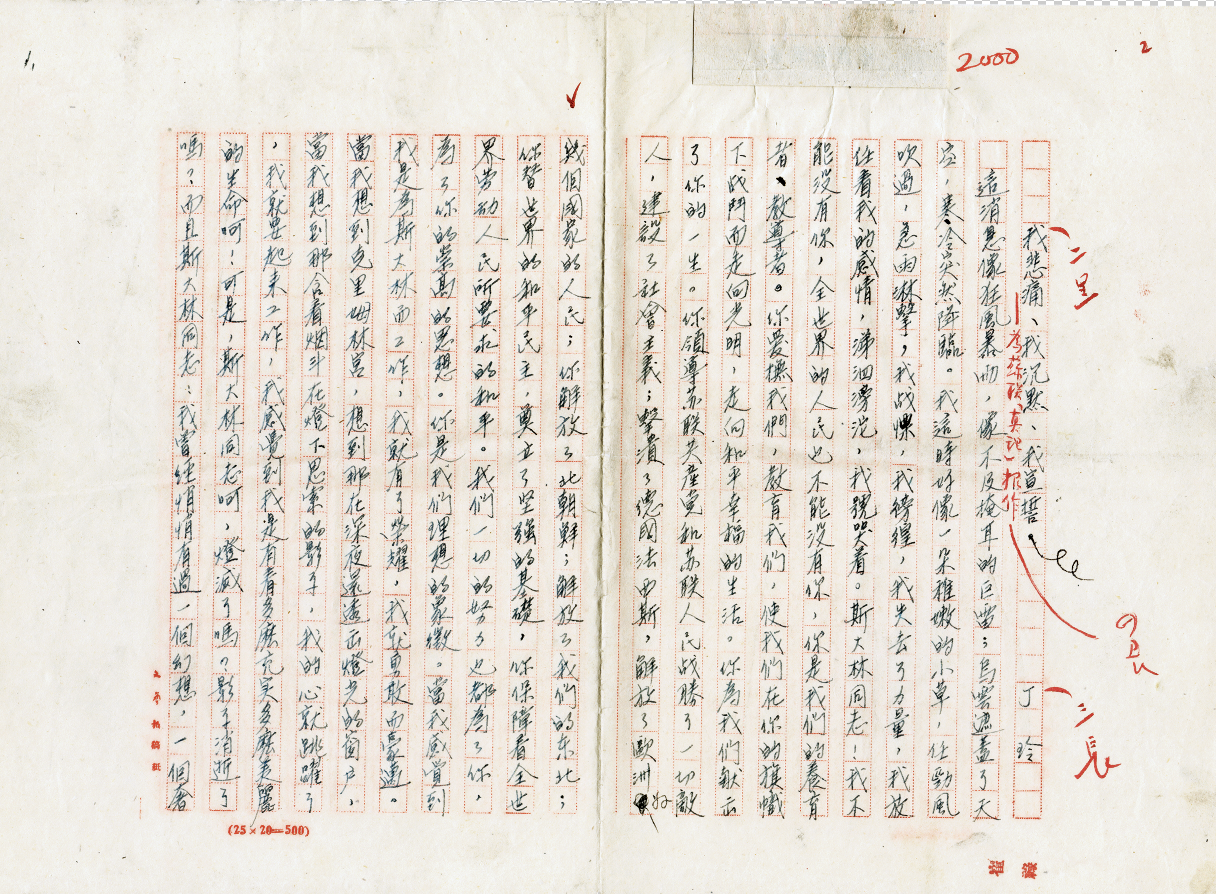 1.
2
2000
我悲痛、我沉默、我宣誓
丁玲
二号
三長
為苏联《真理》报作
這消息像狂風暴雨，像不及掩耳的巨雷；烏雲遮蓋了天
空，寒冷突然降臨。我這時好像一朵稚嫩的小草，任勁風
吹過，急雨淋擊，我战慄，我徬徨，我失去了力量，我放
任着我的感情，涕泗滂沱，我號哭着。斯大林同志！我不
能没有你，全世界的人民也不能没有你，你是我们的養育
者、教導者。你愛撫我們，教育我们，使我们在你的旗幟
下战鬥而走向光明，走向和平幸福的生活。你為我们献出
了你的一生。你領導苏联共產党和苏联人民战勝了一切敵
人，建設了社會主義；擊潰了德國法西斯，解放了歐洲好
幾個國家的人民；你解放了北朝鮮；解放了我们的东北；
你替世界的和平民主，奠立了坚强的基礎，你保障着全世
界劳动人民所要求的和平。我們一切的努力也都為了你，
為了你的崇高的思想。你是我们理想的象徵。當我感覺到
我是為斯大林而工作！我就有了榮耀，我就勇敢而豪邁。
當我想到克里姆林宫，想到那在深夜還透出燈光的窗户，
當我想到那含着烟斗在燈下思索的影子，我的心就跳躍了
，我就要起来工作，我感覺到我是有着多麽充实多麽美麗
的生命呵！可是，斯大林同志呵，燈滅了嗎？影子消逝了
嗎？而且斯大林同志：我曾經悄悄有過一個幻想，一個奢
文艺报稿紙
(25×20=500)